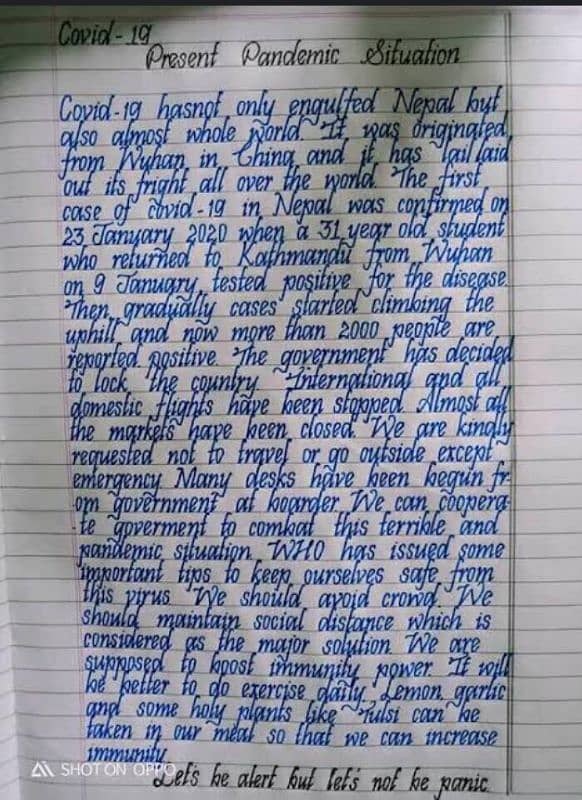 Covid-19
Present Pandemic Situation
Covid-19 hasnot only engulfed Nepal but
also almost whole world. It was originated
from Wuhan in China and it has laid
out its fright all over the world. The first
case of covid-19 in Nepal was confirmed on
23 January 2020 when a 31 year old student
who returned to Kathmandu from Wuhan
on 9 January, tested positive for the disease.
Then, gradually cases started climbing the
uphill and now more than 2000 people are
reported positive. The government has decided
to lock the country. International and all
domestic flights have been stopped. Almost all
the markets have been closed. We are kindly
requested not to travel or go outside except
emergency. Many desks have been begun fr-
om government at boarder. We can coopera-
te goverment to combat this terrible and
pandemic situation. WHO has issued some
important tips to keep ourselves safe from
this virus. We should avoid crowd. We
should maintain social distance which is
considered as the major solution. We are
supposed to boost immunity power. It will
be better to do exercise daily. Lemon, garlic
and some holy plants like Tulsi can be
taken in our meal so that we can increase
immunity.
Let's be alert but let's not be panic.
SHOT ON OPPO